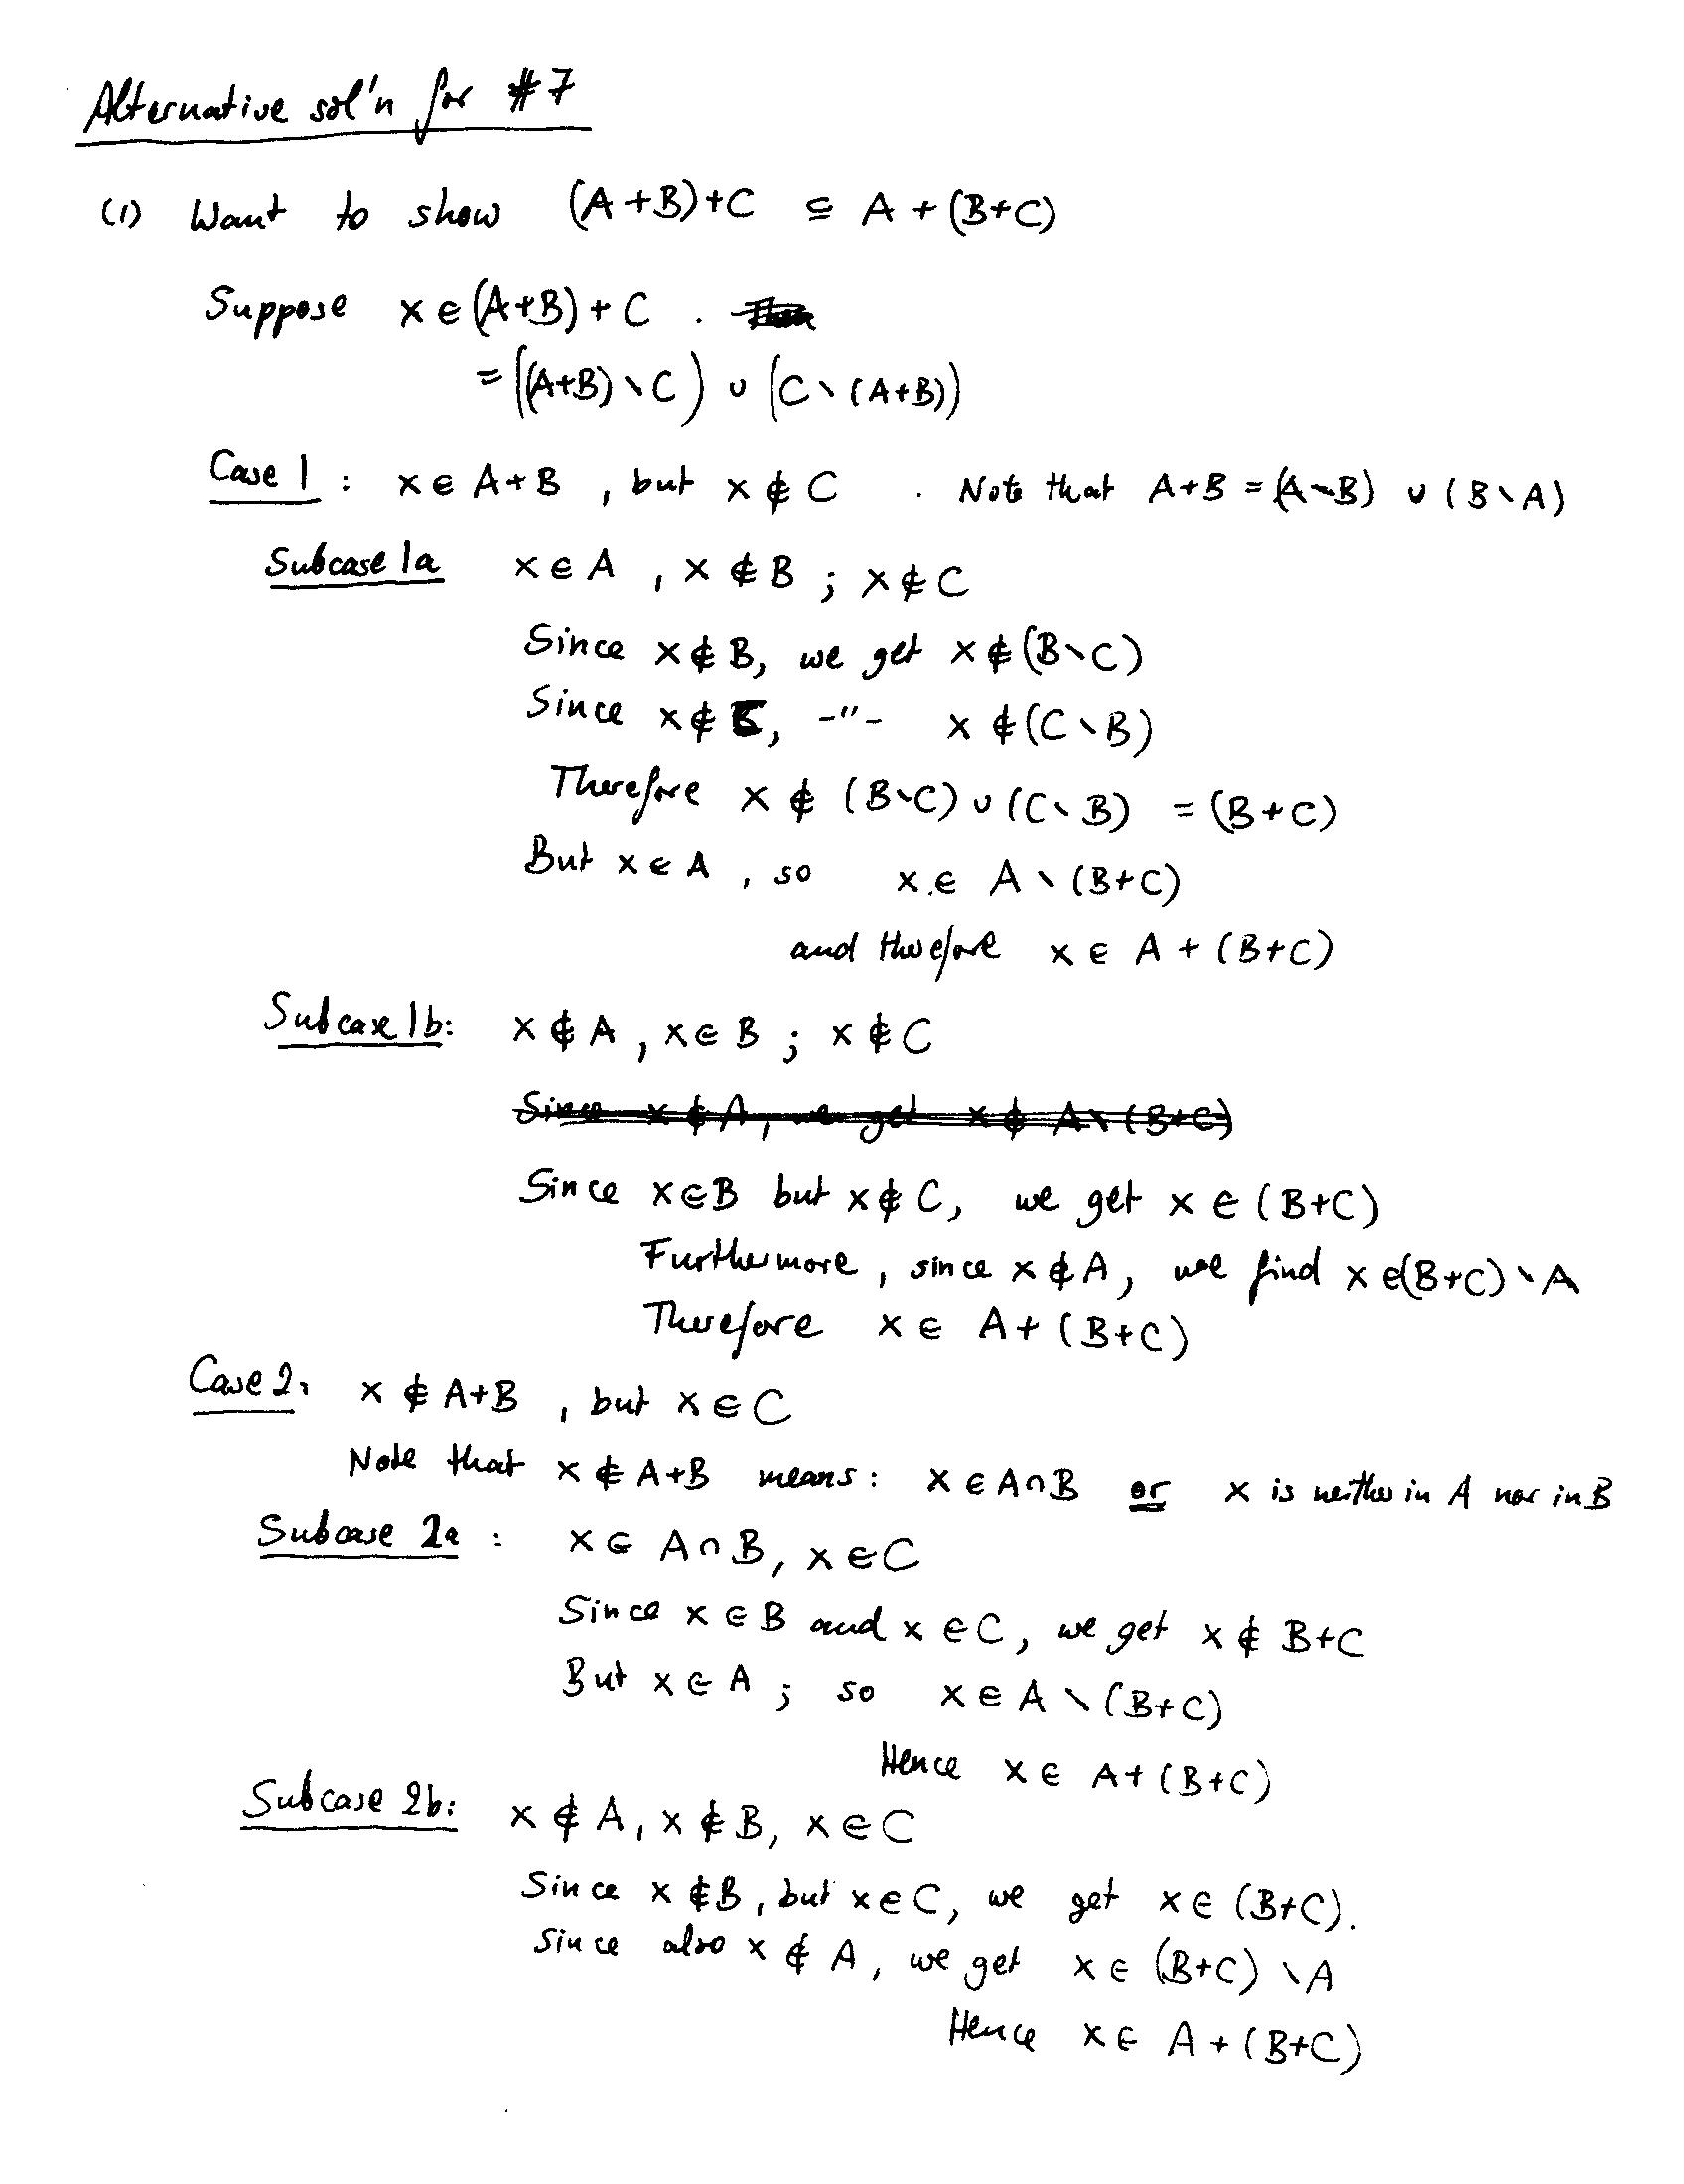 Alternative sol'n for #7
(1) Want to show (A+B)+C ⊆ A+(B+C)
Suppose x∈(A+B)+C .
=((A+B)∖C) ∪ (C∖(A+B))
Case 1 : x∈A+B , but x∉C . Note that A+B = (A∖B) ∪ (B∖A)
Subcase 1a x∈A , x∉B ; x∉C
Since x∉B, we get x∉(B∖C)
Since x∉B, -"- x∉(C∖B)
Therefore x∉(B∖C)∪(C∖B) = (B+C)
But x∈A , so x∈A∖(B+C)
and therefore x∈A+(B+C)
Subcase 1b: x∉A , x∈B ; x∉C
Since x∉A, we get x∉A∖(B+C)
Since x∈B but x∉C, we get x∈(B+C)
Furthermore, since x∉A, we find x∈(B+C)∖A
Therefore x∈A+(B+C)
Case 2: x∉A+B , but x∈C
Note that x∉A+B means: x∈A∩B or x is neither in A nor in B
Subcase 2a : x∈A∩B, x∈C
Since x∈B and x∈C, we get x∉B+C
But x∈A ; so x∈A∖(B+C)
Hence x∈A+(B+C)
Subcase 2b: x∉A, x∉B, x∈C
Since x∉B, but x∈C, we get x∈(B+C).
Since also x∉A, we get x∈(B+C)∖A
Hence x∈A+(B+C)